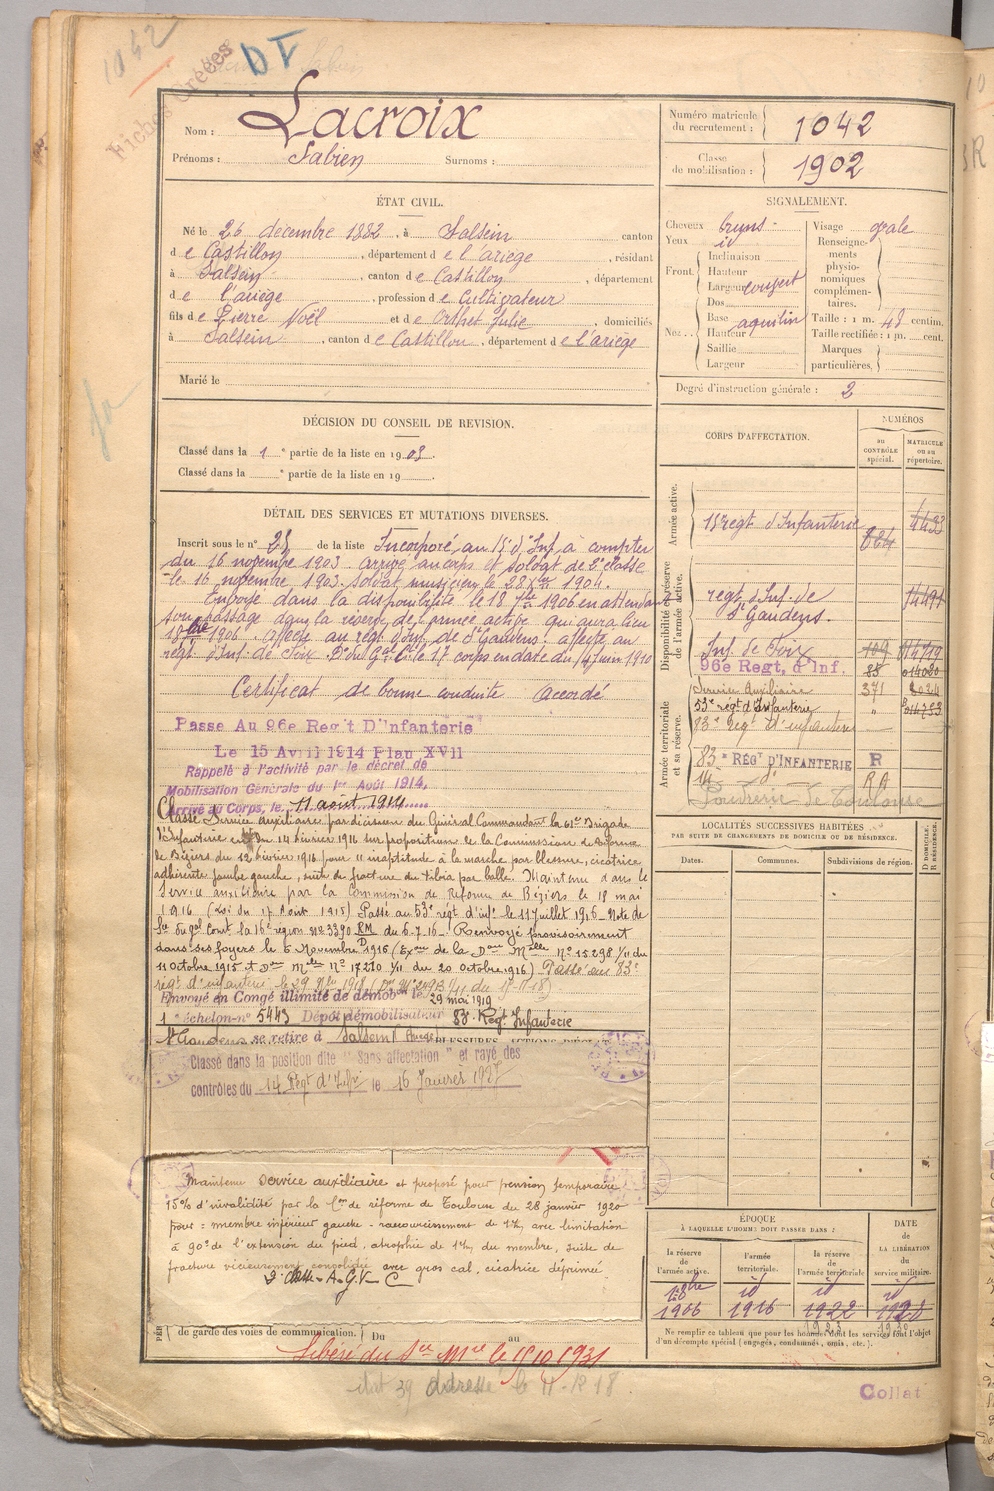 1042
DV
Fiches Créées
Nom : Lacroix
Prénoms : Fabien Surnoms :
Numéro matricule du recrutement : 1042
Classe de mobilisation : 1902
ÉTAT CIVIL.
Né le 26 décembre 1882, à Salsein canton
d e Castillon, département d e l'ariège, résidant
à Salsein, canton d e Castillon, département
d e l'ariège, profession d e Cultivateur
fils d e Pierre Noël et d e Orthet Julie, domiciliés
à Salsein, canton d e Castillon, département d e l'ariège
Marié le
SIGNALEMENT.
Cheveux bruns
Yeux id
Front. Inclinaison
Hauteur
Largeur couvert
Nez. Dos
Base aquilin
Hauteur
Saillie
Largeur
Visage ovale
Renseignements physionomiques complémentaires.
Taille : 1 m. 48 centim.
Taille rectifiée : 1 m. cent.
Marques particulières,
Degré d'instruction générale : 2
DÉCISION DU CONSEIL DE REVISION.
Classé dans la 1e partie de la liste en 1903.
Classé dans la e partie de la liste en 19
DÉTAIL DES SERVICES ET MUTATIONS DIVERSES.
Inscrit sous le n° 21 de la liste Incorporé au 15e d'Inf. à compter
du 16 novembre 1903 arrivé au corps et soldat de 2e classe
le 16 novembre 1903. soldat musicien le 28 1904.
Envoyé dans la disponibilité le 18 7bre 1906 en attendant
son passage dans la réserve de l'armée active qui aura lieu
1906. affecté au régt d'Inf. de St Gaudens. affecté au
régt d'Inf. de Foix. Don du Gal Ct le 17e corps en date du 14 juin 1910
Certificat de bonne conduite accordé
Passe Au 96e Reg't D'Infanterie
Le 15 Avril 1914 Plan XVII
Rappelé à l'activité par le décret de
Mobilisation Générale du 1er Août 1914.
Arrivé au Corps, le 11 août 1914
Classé Service auxiliaire par décision du Général Commandant la 61e Brigade
d'Infanterie en date du 14 février 1916 sur proposition de la Commission de Réforme
de Béziers du 12 février 1916 pour " inaptitude à la marche par blessure, cicatrice
adhérente jambe gauche, suite de fracture du tibia par balle. Maintenu dans le
Service auxiliaire par la Commission de Réforme de Béziers le 18 mai
1916 (Loi du 17 Août 1915) Passé au 53e régt d'inf. le 11 juillet 1916 Note de
la 16e région No 3390 RM du 6.7.16. Renvoyé provisoirement
dans ses foyers le 6 Novembre 1916 ( de la Don Mlle No 15298 1/11 du
11 Octobre 1915 et Don Mlle No 17270 1/11 du 20 Octobre 1916) Passé au 83e
régt d'infanterie le 29 1918
Envoyé en Congé illimité de démobon le 29 mai 1919
1 e échelon-n° 5443 Dépôt démobilisateur 83e Régt Infanterie
St Gaudens se retire à Salsein (Ariège)
Classé dans la position dite " Sans affectation " et rayé des
contrôles du 14 Régt d'Inf le 16 Janvier 1927
Maintenu service auxiliaire et proposé pour pension temporaire
15% d'invalidité par la Con de réforme de Toulouse du 28 janvier 1920
pour : membre inférieur gauche - raccourcissement de avec limitation
à 90° de l'extension du pied, atrophie de du membre, suite de
fracture vicieusement consolidée avec gros cal, cicatrice déprimée
A.G.V. C
de garde des voies de communication. Du au
Libéré du Sce Mre le 15/10/1931
état 39 adresse le 11-12 18
CORPS D'AFFECTATION.
NUMÉROS
au contrôle spécial.
MATRICULE ou au répertoire.
Armée active.
15e régt d'Infanterie
Disponibilité et réserve de l'armée active.
régt d'Inf. de St Gaudens.
Inf. de Foix 109 14719
96e Regt, d'Inf. 85 014080
Armée territoriale et sa réserve.
Service Auxiliaire 371
53e régt d'Infanterie "
83e Régt d'infanterie
83 e RÉGt D'INFANTERIE R
14 d° RA
Poudrerie de Toulouse
LOCALITÉS SUCCESSIVES HABITÉES
PAR SUITE DE CHANGEMENTS DE DOMICILE OU DE RÉSIDENCE.
Dates.
Communes.
Subdivisions de région.
D DOMICILE. R RÉSIDENCE.
ÉPOQUE
À LAQUELLE L'HOMME DOIT PASSER DANS :
la réserve de l'armée active.
l'armée territoriale.
la réserve de l'armée territoriale
DATE de LA LIBÉRATION du service militaire.
1906
id 1916
id 1922
id 1928
Ne remplir ce tableau que pour les hommes dont les services font l'objet
d'un décompte spécial (engagés, condamnés, omis, etc.).
Collat